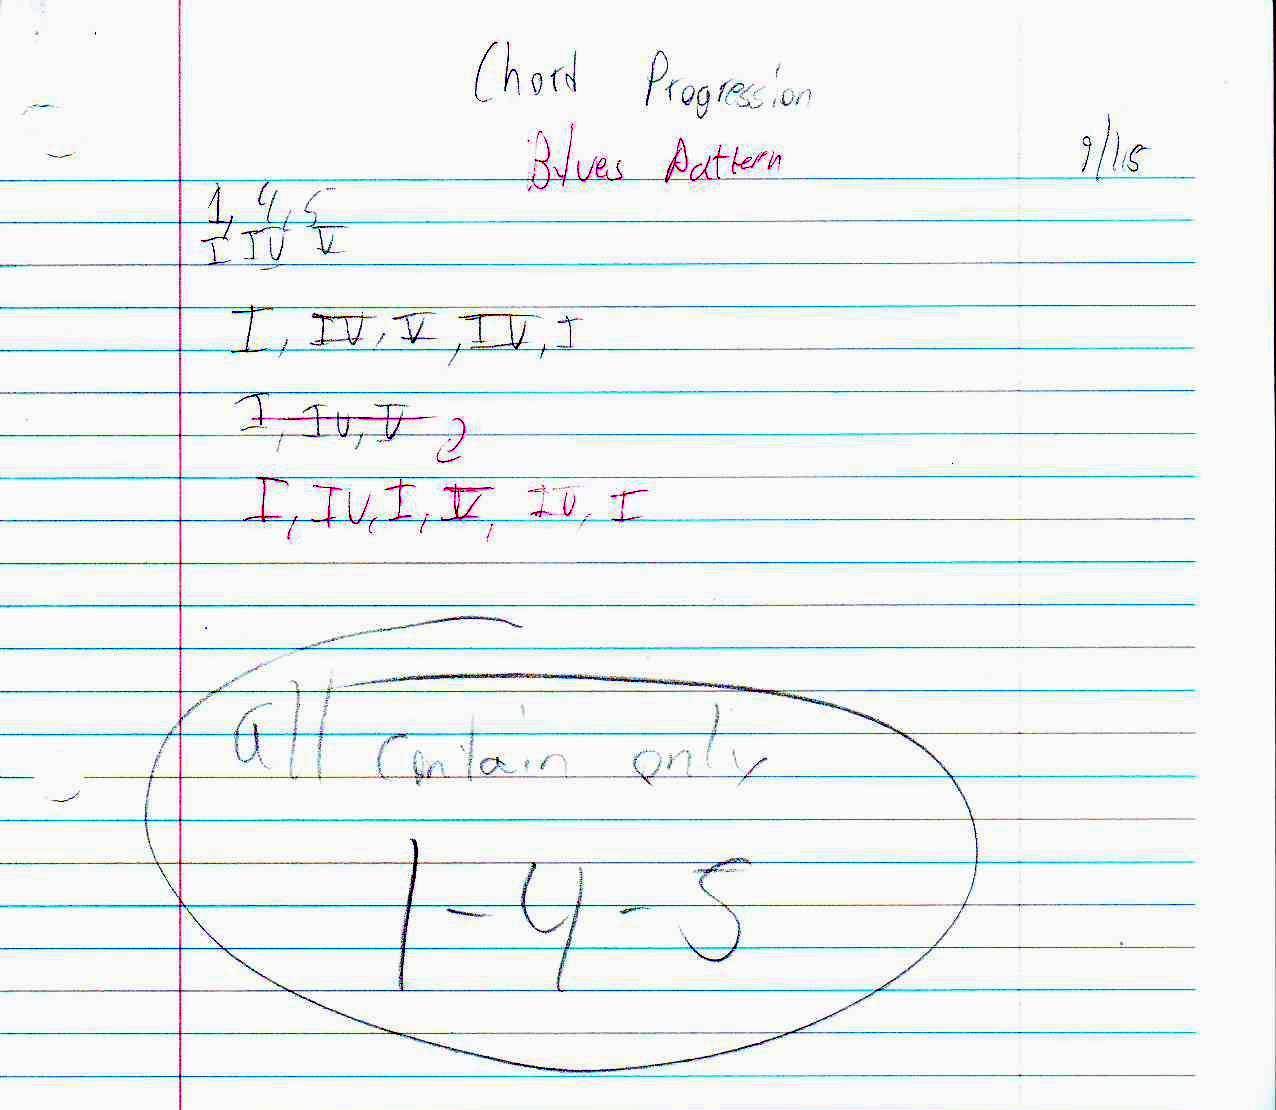 Chord Progression
Blues Pattern
9/15
1, 4, 5
I IV V
I, IV, V, IV, I
I, IV, V
I, IV, I, V, IV, I
all contain only
1-4-5